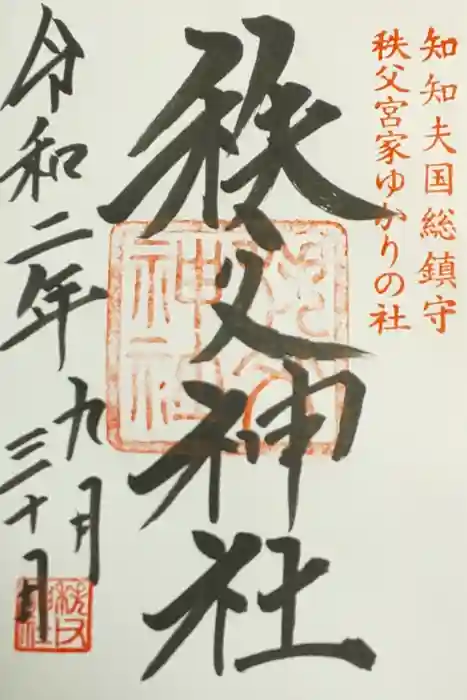 知知夫国総鎮守
秩父宮家ゆかりの社
秩父神社
令和二年九月三十日
秩父神社
秩父神社